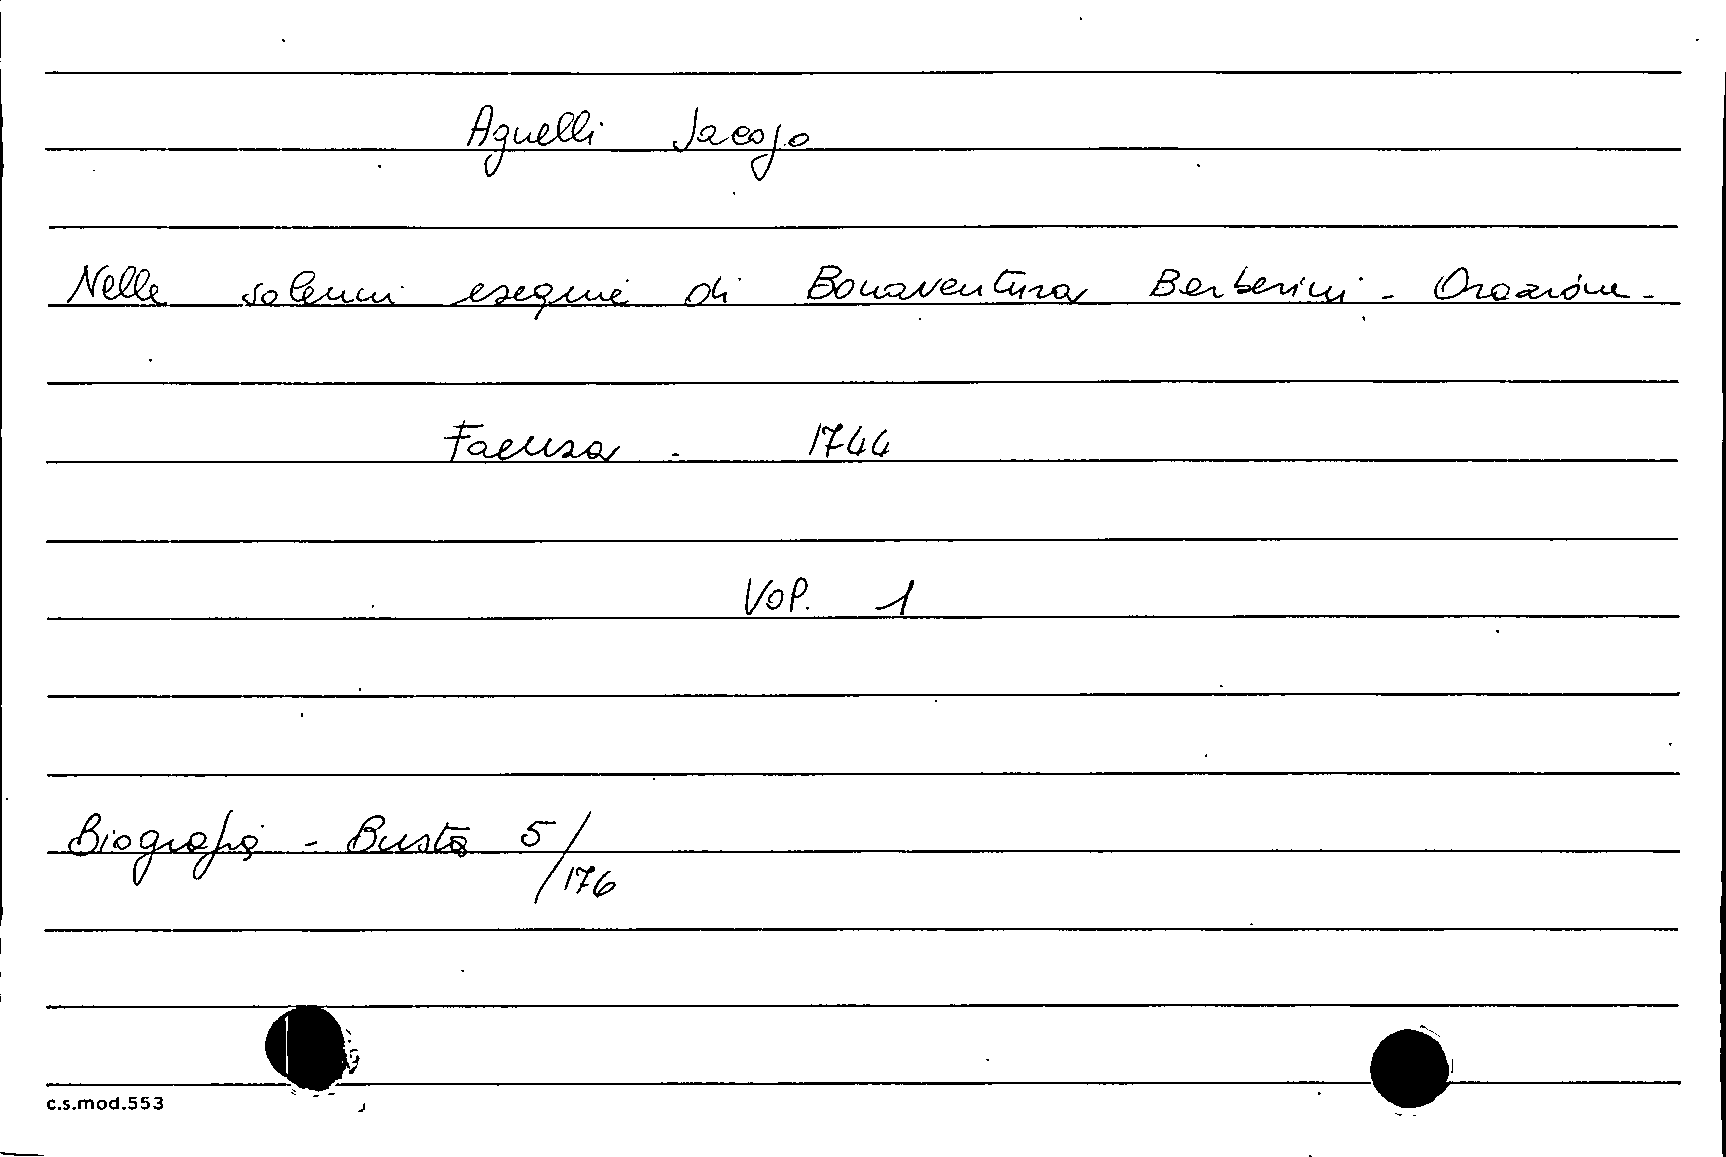 Agnelli Jacopo
Nelle solenni esequie di Bonaventura Barberini - Orazione -
Faenza - 1744
Vol. 1
Biografia - Busta 5/176
c.s.mod.553